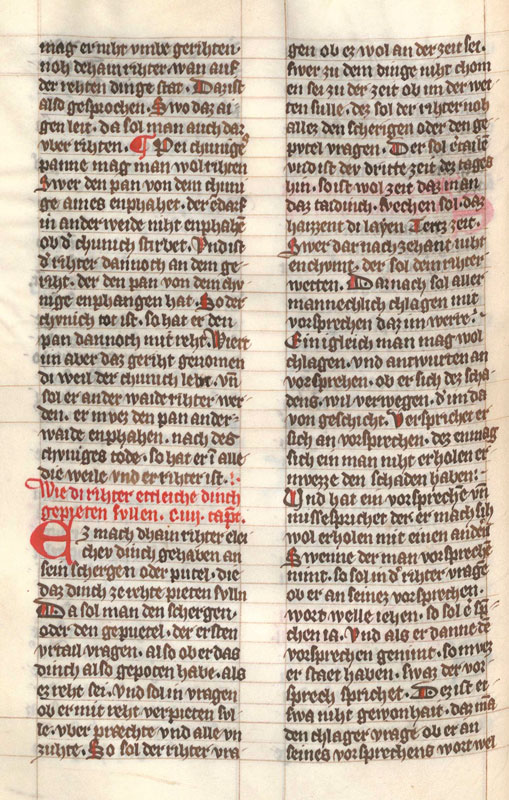 mag er niht vmbe gerihten·
noh dehain rihter· wan auf
der rehten dinge stat· Danst
also gesprochen· Swo daz ai-
gen leit· da sol man auch daz
vber rihten· ¶ Pei chunige
panne mag man wol rihten
Swer den pan von dem chuni
ge aines enphahet· der endarf
in ander weide niht enphahen
ob dˢ chunich stirbet· Vnd ist
dˢ rihter dannoch an dem ge-
riht· der den pan von dem chv
nige enphangen hat· So der
chvnich tot ist· so hat er den
pan dannoch mit reht· Wiert
im aber daz geriht genomen
di weil der chunich lebt· vn̄
sol er ander waide rihter wer
den· er mvez den pan ander-
waide enphahen· nach des
chvniges tode· so hat er ī alle
die weile vnd er rihter ist·
Wie di rihter etleiche dinch
gepieten svllen· c iiij· capt̄·
Ez mach dhain rihter elei
chev dinch gehaben an
sein schergen oder putel· die
daz dinch ze rehte pieten svlln
Da sol man den schergen·
oder den gepuetel· der ersten
vrtail vragen· also ob er daz
dinch also gepoten habe· als
ez reht sei· vnd sol in vragen
ob er mit reht verpieten svl
le· vber praechte vnd alle vn
zuhte· So sol der rihter vra
gen ob ez wol an der zeit sei·
swer zu dem dinge niht chom
en sei zu der zeit ob im der wet
ten sulle· dez sol der rihter noh
allez den scherigen oder den ge
pvtel vragen· Der sol ertailē
vnd ist der dritte zeit dez tages
hin· so ist wol zeit daz man
daz taidinch· svechen sol· daz
haizzent di layen Tertz zeit·
Swer dar nach zehant niht
enchvmt· der sol dem rihter
wetten· Darnach sol aller
mannechlich chlagen mit
vorsprechen daz im werre·
Einigleich man mag wol
chlagen· vnd antwurten an
vorsprehen· ob er sich dez scha-
dens· wil verwegen· dˢ im da
von geschicht· Versprichet er
sich an vorsprechen· dez enmag
sich ein man niht erholen er
mveze den schaden haben·
Vnd hat ein vorsprechē vn̄
missesprichet der· er mach sih
wol erholen mit einen andˢn
Swenne der man vorsprechē
nimt· so sol in dˢ rihter vrage
ob er an seinez vorsprechen·
wort welle iehen· so sol e sp̄
chen ia· Vnd als er danne dē
vorsprechen genimt· so mvez
er staet haben· swaz der vor-
sprech sprichet· Dez ist et
swa niht gewonhait· daz mā
den chlager vrage ob er an
seines vorsprechens wort wel